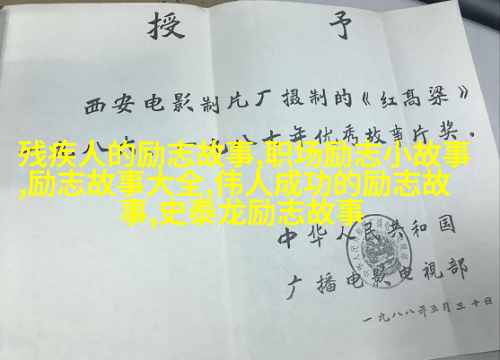 授予
西安电影制片厂摄制的《红高粱》
一九八七年优秀故事片奖。
残疾人的励志故事,职场励志小故事
,励志故事大全,伟人成功的励志故
事,史泰龙励志故事
中华人民共和国
广播电影电视部
一九八八年三月三十日